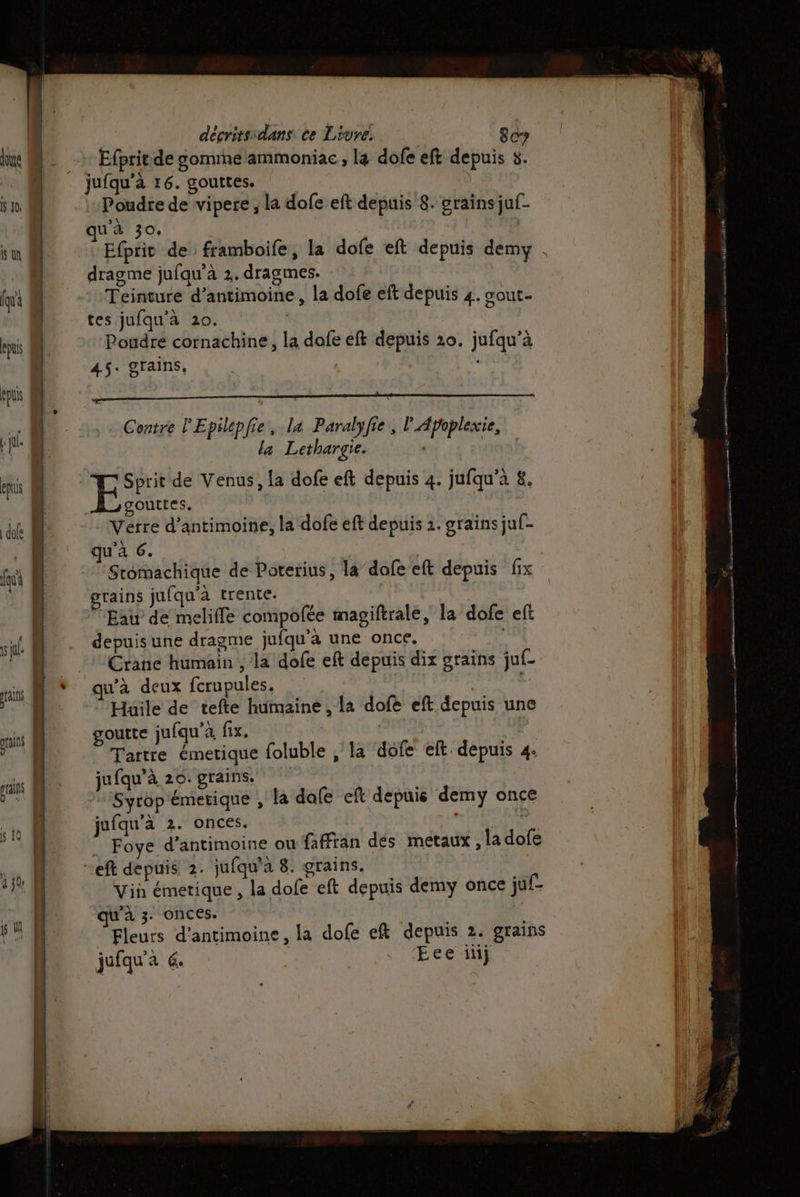 décrits dans ce Livre. 809
Eſprit de gomme ammoniac, la doſe eſt depuis 8.
juſqu'à 16. gouttes.
Poudre de vipere, la doſe eſt depuis 8. grains juſ-
qu'à 30.
Eſprit de framboiſe, la doſe eſt depuis demy
dragme juſqu'à 2. dragmes.
Teinture d'antimoine, la doſe eſt depuis 4. gout-
tes juſqu'à 20.
Poudre cornachine, la doſe eſt depuis 20. juſqu'à
45. grains.
Contre l'Epilepſie, la Paralyſie, l'Apoplexie,
la Lethargie.
ESprit de Venus, la doſe eſt depuis 4. juſqu'à 8.
gouttes.
Verre d'antimoine, la doſe eſt depuis 2. grains juſ-
qu'à 6.
Stomachique de Poterius, la doſe eſt depuis ſix
grains juſqu'à trente.
Eau de meliſſe compoſée magiſtrale, la doſe eſt
depuis une dragme juſqu'à une once.
Crane humain, la doſe eſt depuis dix grains juſ-
qu'à deux ſcrupules.
Huile de teſte humaine, la doſe eſt depuis une
goutte juſqu'à ſix.
Tartre émetique ſoluble, la doſe eſt depuis 4.
juſqu'à 20. grains.
Syrop émetique, la doſe eſt depuis demy once
juſqu'à 2. onces.
Foye d'antimoine ou ſaffran des metaux, la doſe
eſt depuis 2. juſqu'à 8. grains.
Vin émetique, la doſe eſt depuis demy once juſ-
qu'à 3. onces.
Fleurs d'antimoine, la doſe eſt depuis 2. grains
juſqu'à 6.
Eee iiij